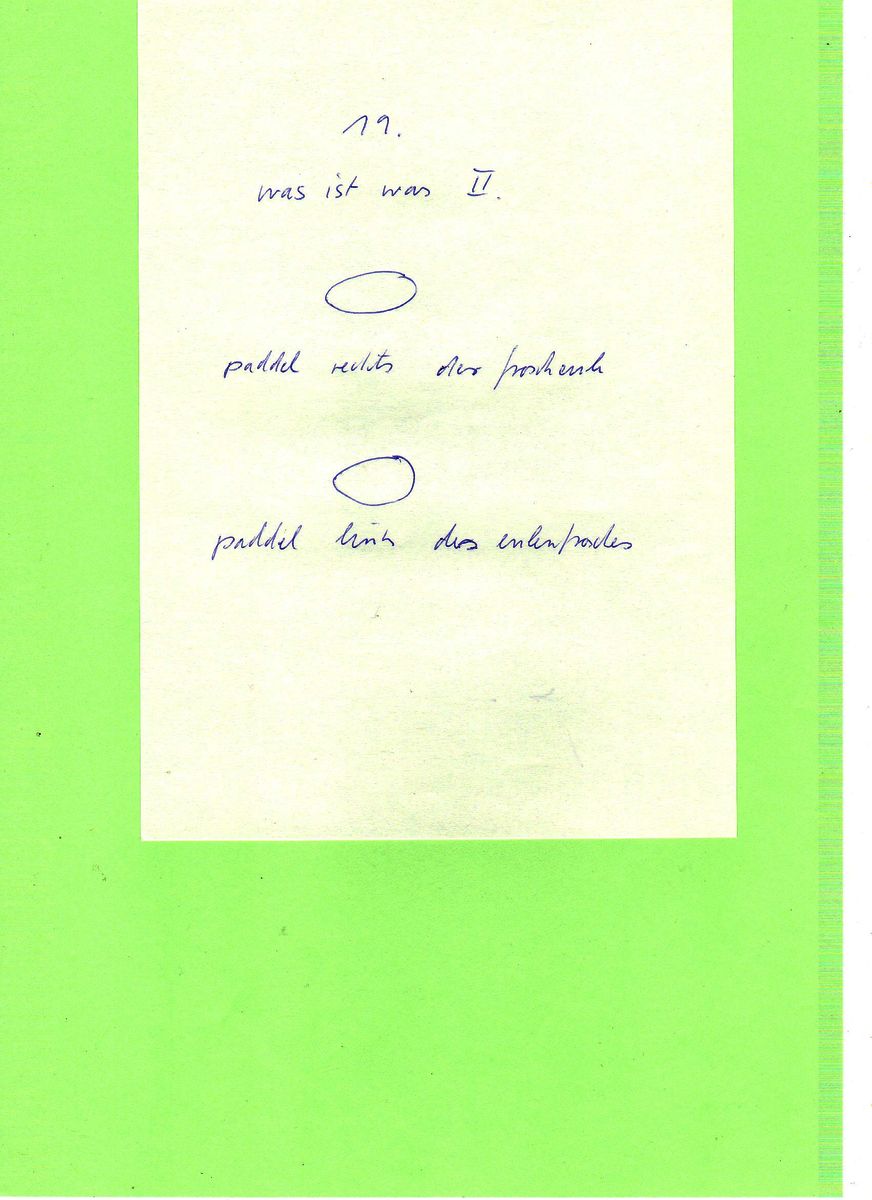 19.
was ist was II.
paddel rechts der froscheule
paddel links des eulenfrosches